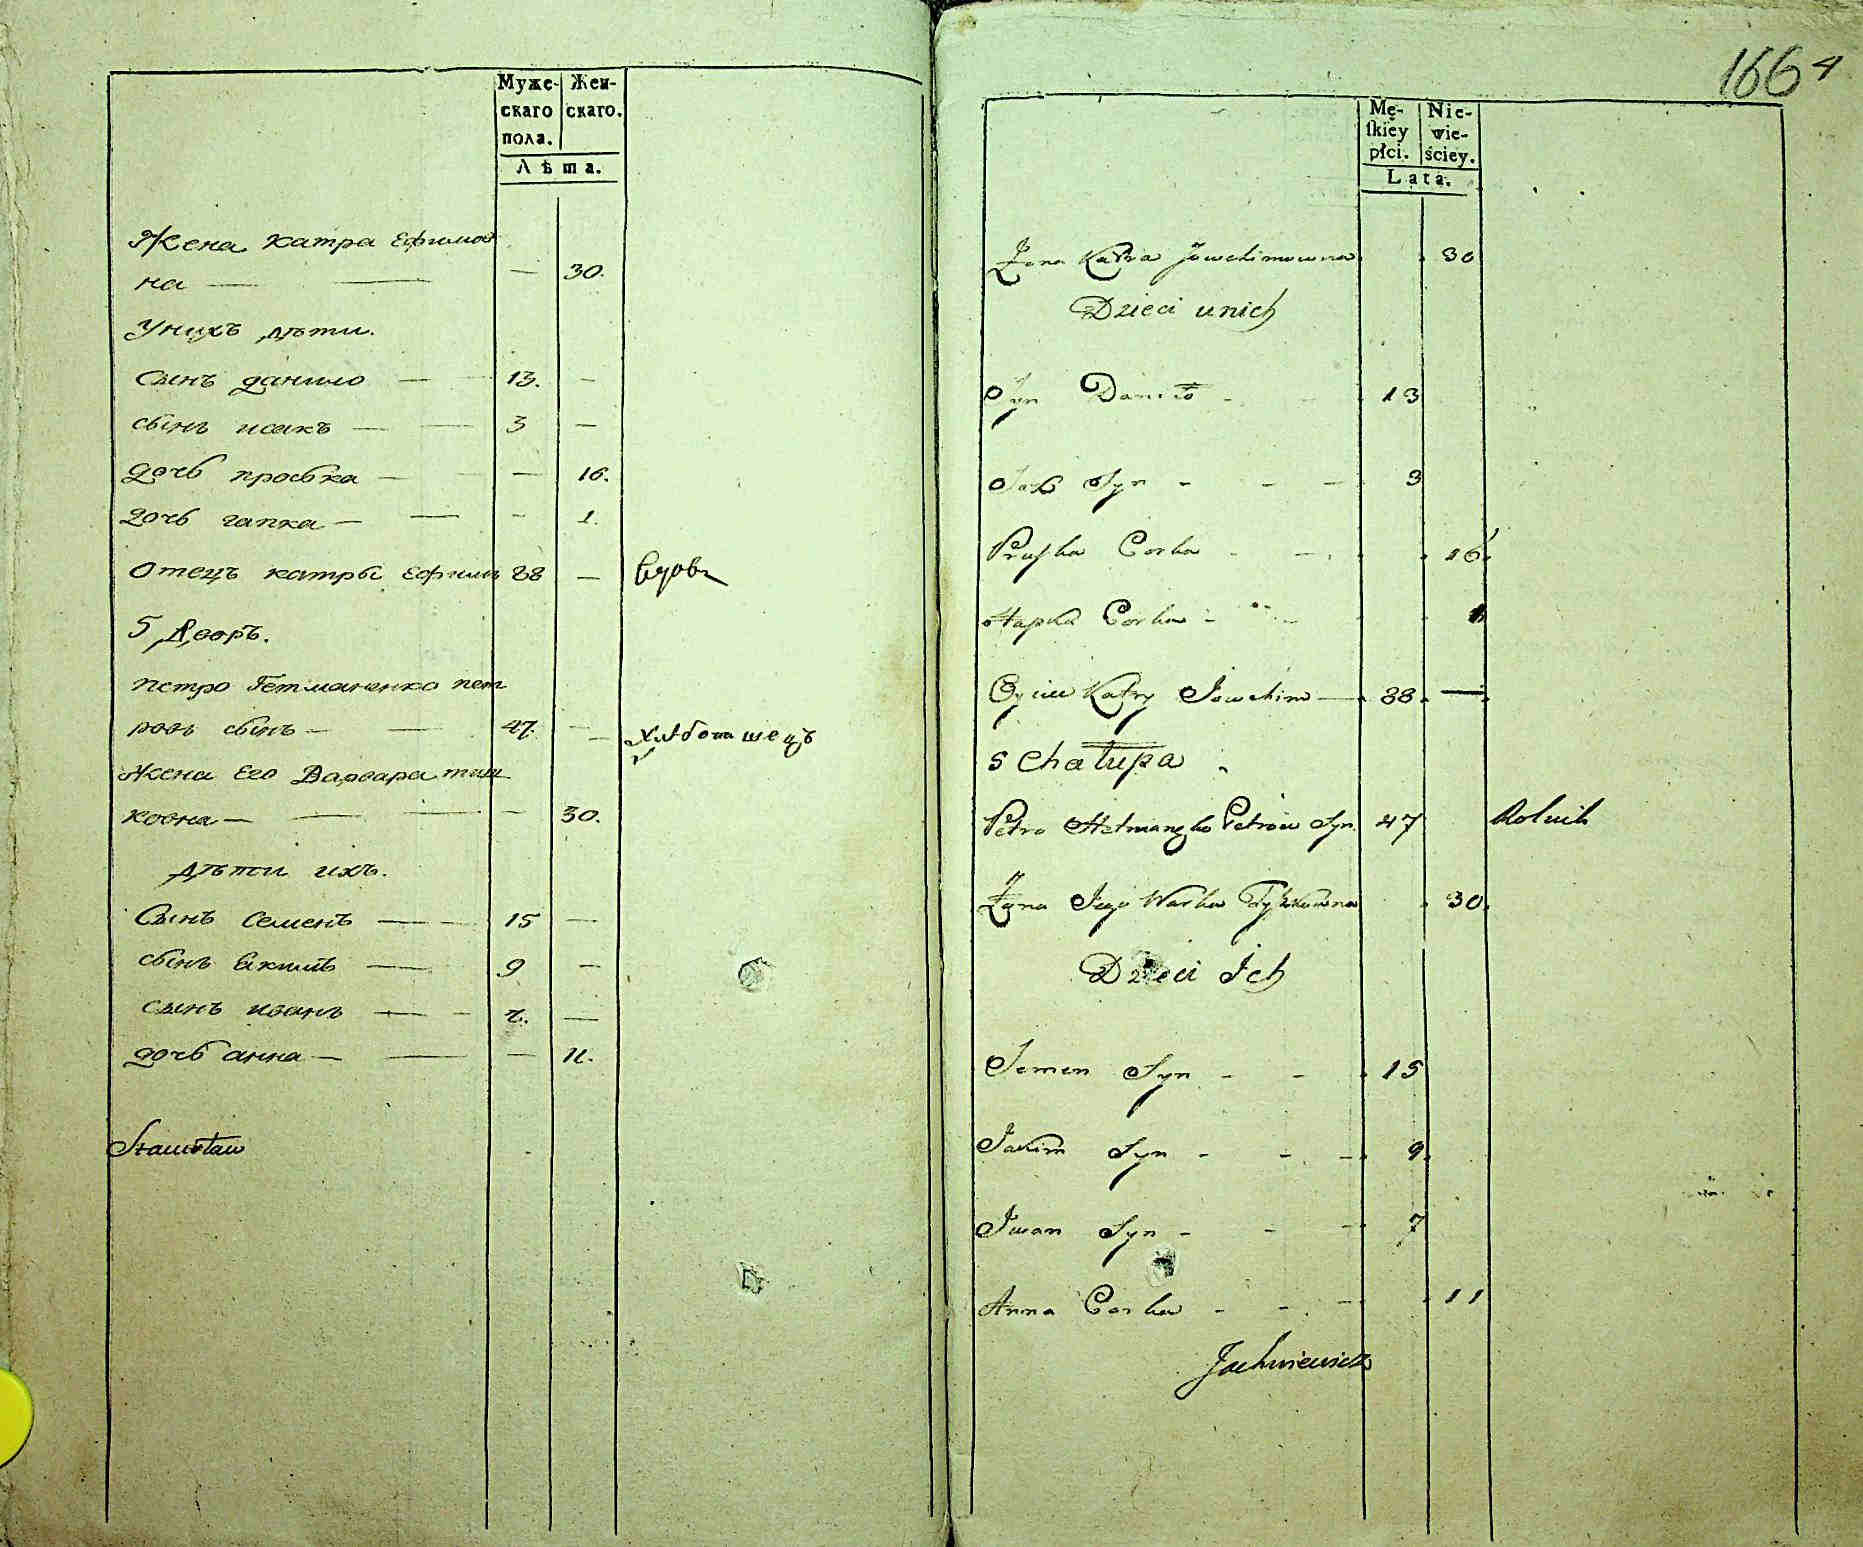 Муже- Жен-
скаго скаго.
пола.
Лѣта.
Жена катра Ефимов
на — — — 30.
Унихъ дѣти.
Сынъ данило — 13. —
сынъ исакъ — — 3 —
дочь проська — — — 16.
дочь гапка — — - 1.
Отецъ катры Ефимъ 88 — вдовъ
5 Дворъ.
петро Гетманенко пет
ровъ сынъ — — 47. — хлѣбопашецъ
Жена Его Варвара тиш
ковна — — — — 30.
дѣти ихъ.
Сынъ Семенъ — — 15 —
сынъ Екимъ — 9 —
сынъ иванъ — - 7. —
дочь анна — — — 11.
Stanisław
166 4
Mę- Nie-
ſkiey wie-
płci. ściey.
Lata.
Żona Katra Jowchimowna 30
Dzieci unich
Syn Daniło - - 13
Isak Syn - - - 3
Pruſka Corka - - 16
Hapka Corka - - 1
Oyciec Katry Jowchim — 88 —
5 Chałupa
Petro Hetmanenko Petrow Syn 47 Rolnik
Żona Jego Warka Tyszkowna 30
Dzieci Ich
Semen Syn - - 15
Jakim Syn - - - 9
Iwan Syn - - - 7
Anna Corka - - - 11
Jachniewicz